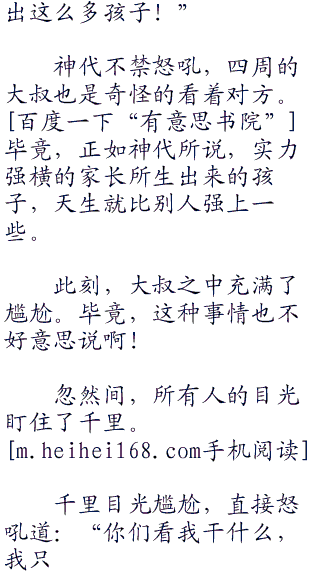 出这么多孩子！”
神代不禁怒吼，四周的
大叔也是奇怪的看着对方。
[百度一下“有意思书院”]
毕竟，正如神代所说，实力
强横的家长所生出来的孩
子，天生就比别人强上一
些。
此刻，大叔之中充满了
尴尬。毕竟，这种事情也不
好意思说啊！
忽然间，所有人的目光
盯住了千里。
[m.heihei168.com手机阅读]
千里目光尴尬，直接怒
吼道：“你们看我干什么，
我只